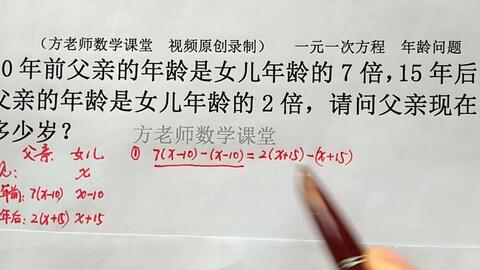 （方老师数学课堂 视频原创录制） 一元一次方程 年龄问题
0年前父亲的年龄是女儿年龄的7倍，15年后
父亲的年龄是女儿年龄的2倍，请问父亲现在
多少岁？
方老师数学课堂
父亲 女儿 ① 7(x-10)-(x-10)=2(x+15)-(x+15)
: x
年前: 7(x-10) x-10
年后: 2(x+15) x+15